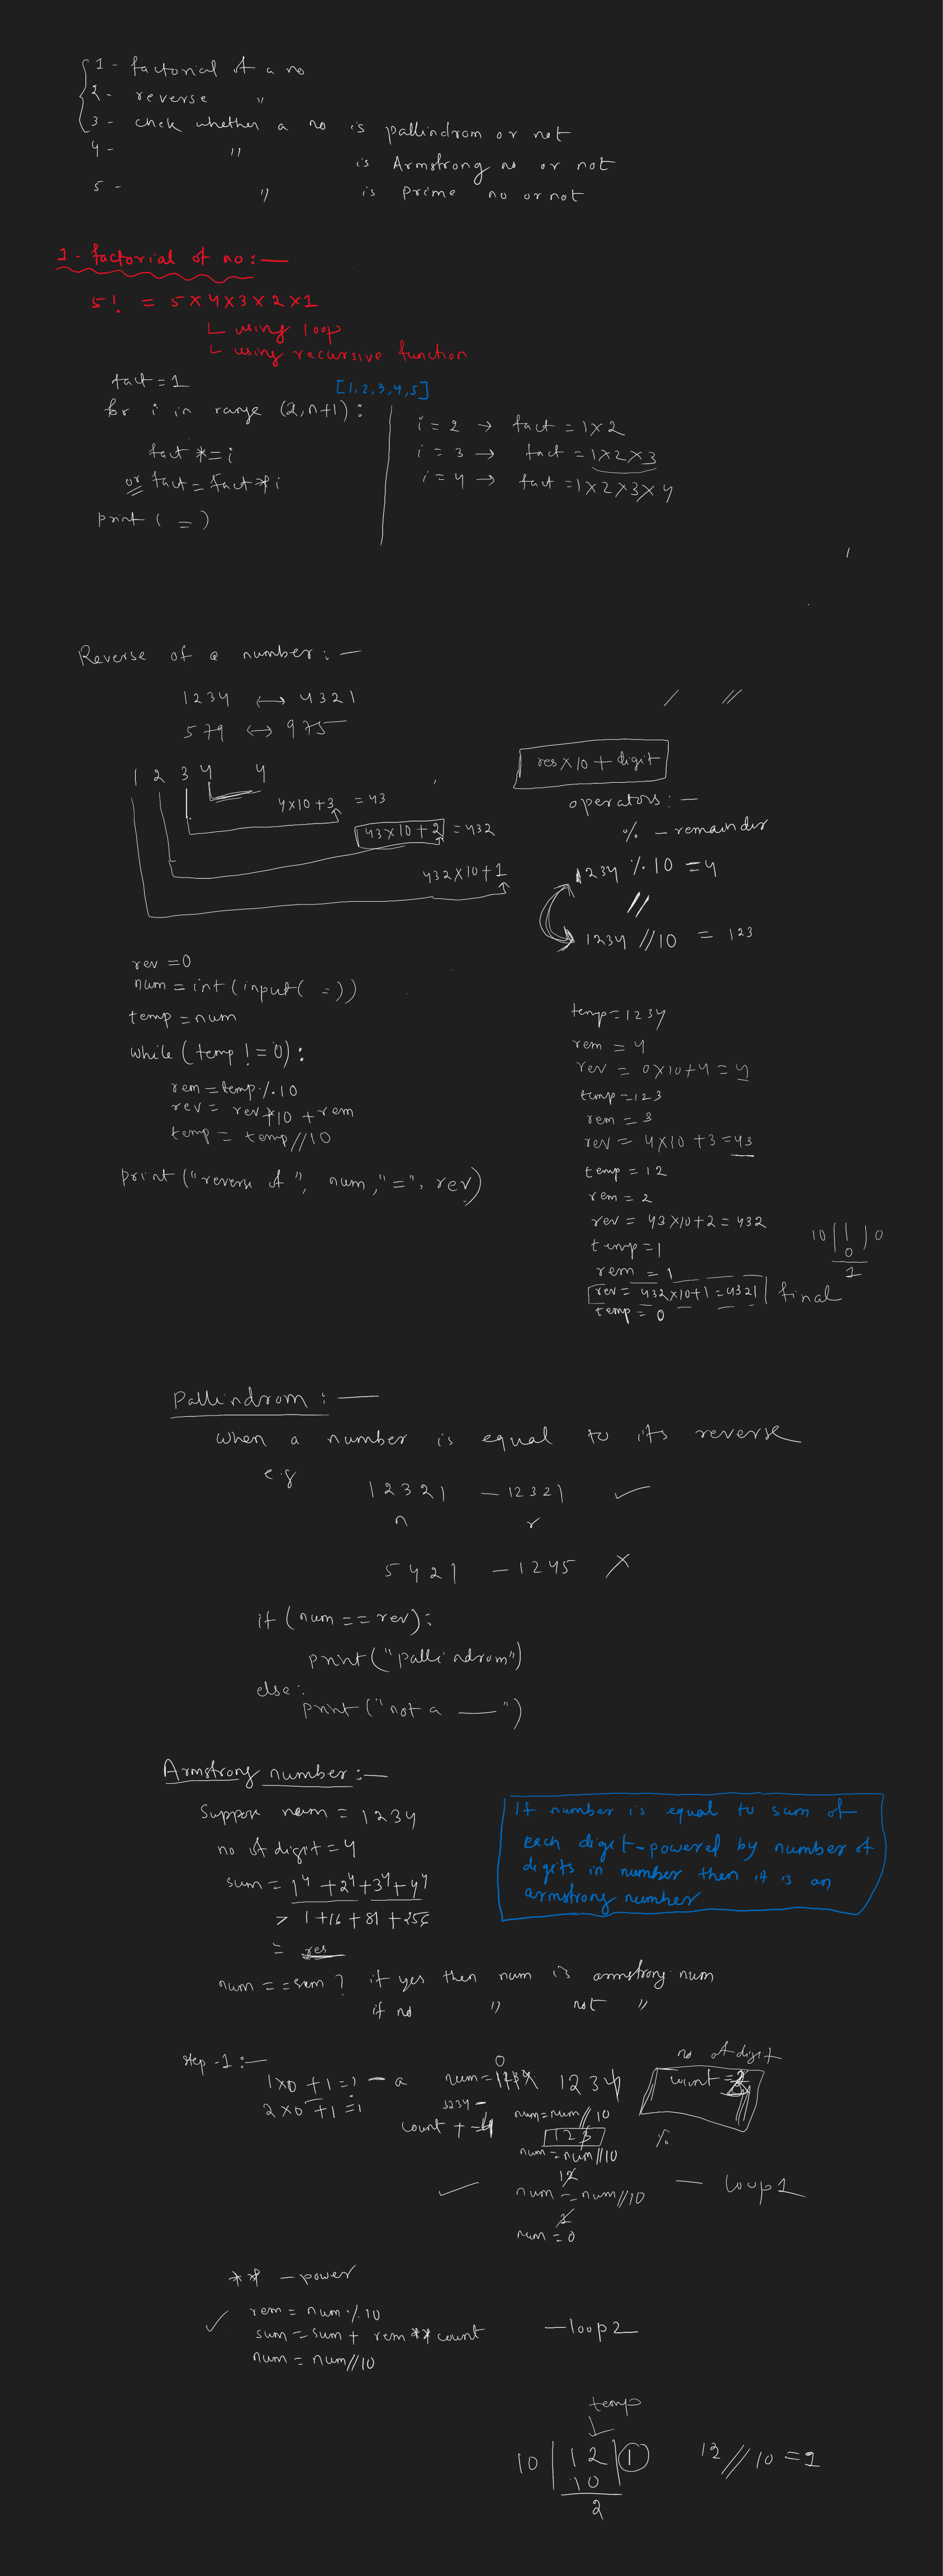 1- factorial of a no
2- reverse "
3- chek whether a no is pallindrom or not
4- " is Armstrong no or not
5- " is prime no or not
1- factorial of no:-
5! = 5×4×3×2×1
using loop
using recursive function
fact=1
[1,2,3,4,5]
for i in range (2,n+1):
fact *=i
or fact=fact*i
print( = )
i=2 → fact=1×2
i=3 → fact=1×2×3
i=4 → fact=1×2×3×4
Reverse of a number:-
1234 ↔ 4321
579 ↔ 975
/ //
1 2 3 4 4
4×10+3 =43
43×10+2 =432
432×10+1
res×10+digit
operators:-
% - remainder
1234 % 10 =4
//
1234 //10 = 123
rev=0
num=int(input( = ))
temp=num
while(temp!=0):
rem=temp%10
rev= rev*10+rem
temp= temp//10
print("reverse of", num,"=", rev)
temp=1234
rem=4
rev= 0×10+4=4
temp=123
rem=3
rev= 4×10+3=43
temp=12
rem=2
rev= 43×10+2=432
temp=1
rem=1
rev= 432×10+1=4321 final
temp=0
10 | 1 | 0
0
1
Pallindrom:-
When a number is equal to its reverse
e.g
12321 - 12321 ✓
n r
5421 - 1245 ×
if (num==rev):
print("pallindrom")
else:
print("not a —")
Armstrong number:-
Suppor num=1234
no of digit=4
sum=1⁴+2⁴+3⁴+4⁴
> 1+16+81+256
= res
num==sum? if yes then num is armstrong num
if no " not "
If number is equal to sum of
each digit powered by number of
digits in number then it is an
armstrong number
step-1:-
no of digit
1×0+1=1 - a
2×0+1=1
0
1234
1234-
count +
num=num//10
123
num=num//10
12
✓ num=num//10 - loop1
1
num=0
%
** -power
✓ rem=num%10
sum=sum+ rem**count -loop2
num=num//10
temp
↓
10 | 12 | 1
10
2
12//10=1